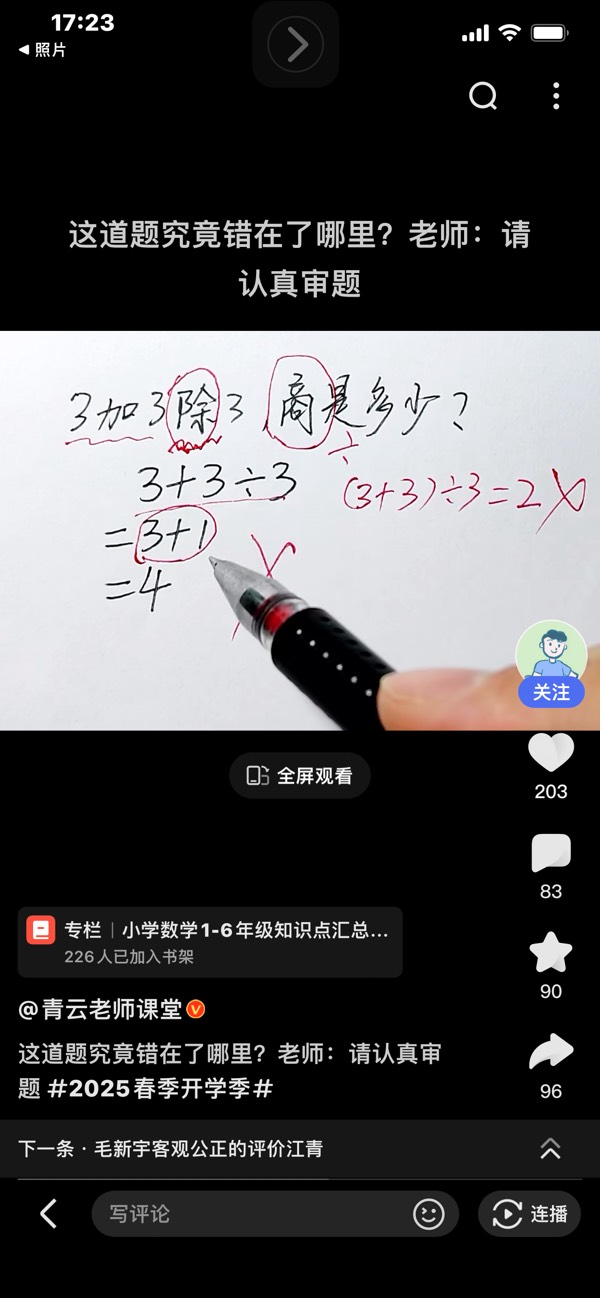 17:23
◀ 照片
这道题究竟错在了哪里？老师：请
认真审题
3加3除3，商是多少？
÷
3+3÷3
(3+3)÷3=2
=3+1
=4
关注
全屏观看
203
83
专栏 | 小学数学1-6年级知识点汇总...
226人已加入书架
90
@青云老师课堂
这道题究竟错在了哪里？老师：请认真审
题 #2025春季开学季#
96
下一条 · 毛新宇客观公正的评价江青
写评论
连播